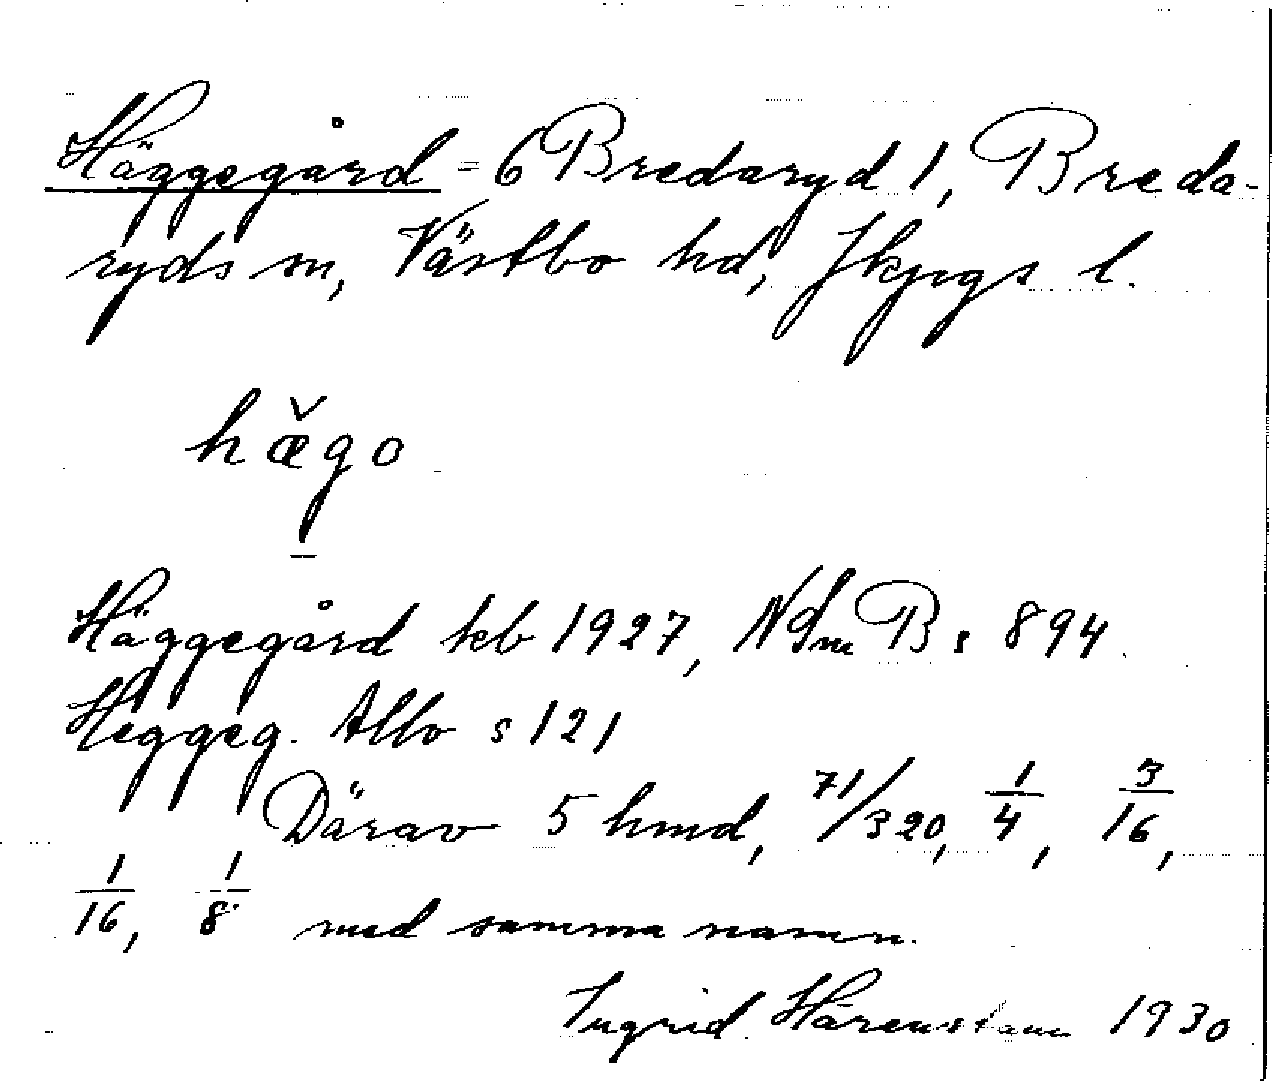 Häggegård = 6 Bredaryd 1, Breda-
ryds sn, Västbo hd, Jkpgs l.
hæ̌go
Häggegård kb 1927, NSm B s 894.
Heggeg. Allbo s 121
Därav 5 hmd, 71/320, 1/4, 3/16,
1/16, 1/8 med samma namn.
Ingrid Härenstam 1930